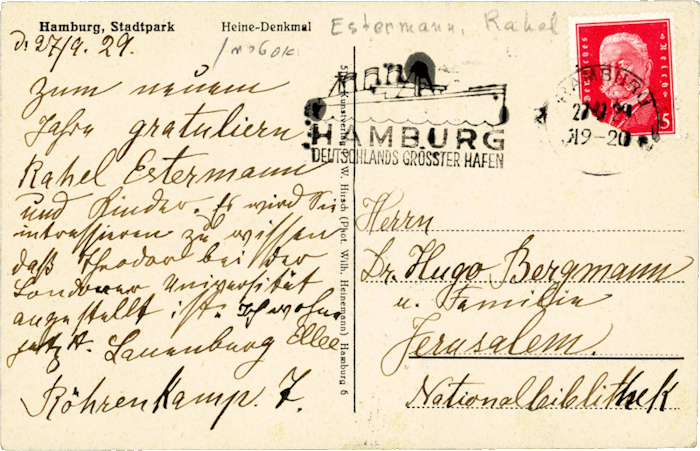 Hamburg, Stadtpark Heine-Denkmal
Estermann, Rahel
d. 27/9. 29.
Zum neuem
Jahre gratuliern
Rahel Estermann
und Kinder. Es wird Sie
intressieren zu wissen
daß Theodor bei der
Londoner Universität
angestellt ist. Ich wohne
jetzt. Lauenburg Ellee
Röhrenkamp. 7.
Kunstverlag W. Hirsch (Phot. Wilh. Heinemann) Hamburg 6
HAMBURG
DEUTSCHLANDS GRÖSSTER HAFEN
Deutsches Reich
15
HAMBURG
19-20
Herrn
Dr. Hugo Bergmann
u. Familie
Jerusalem.
Nationalbiblithek